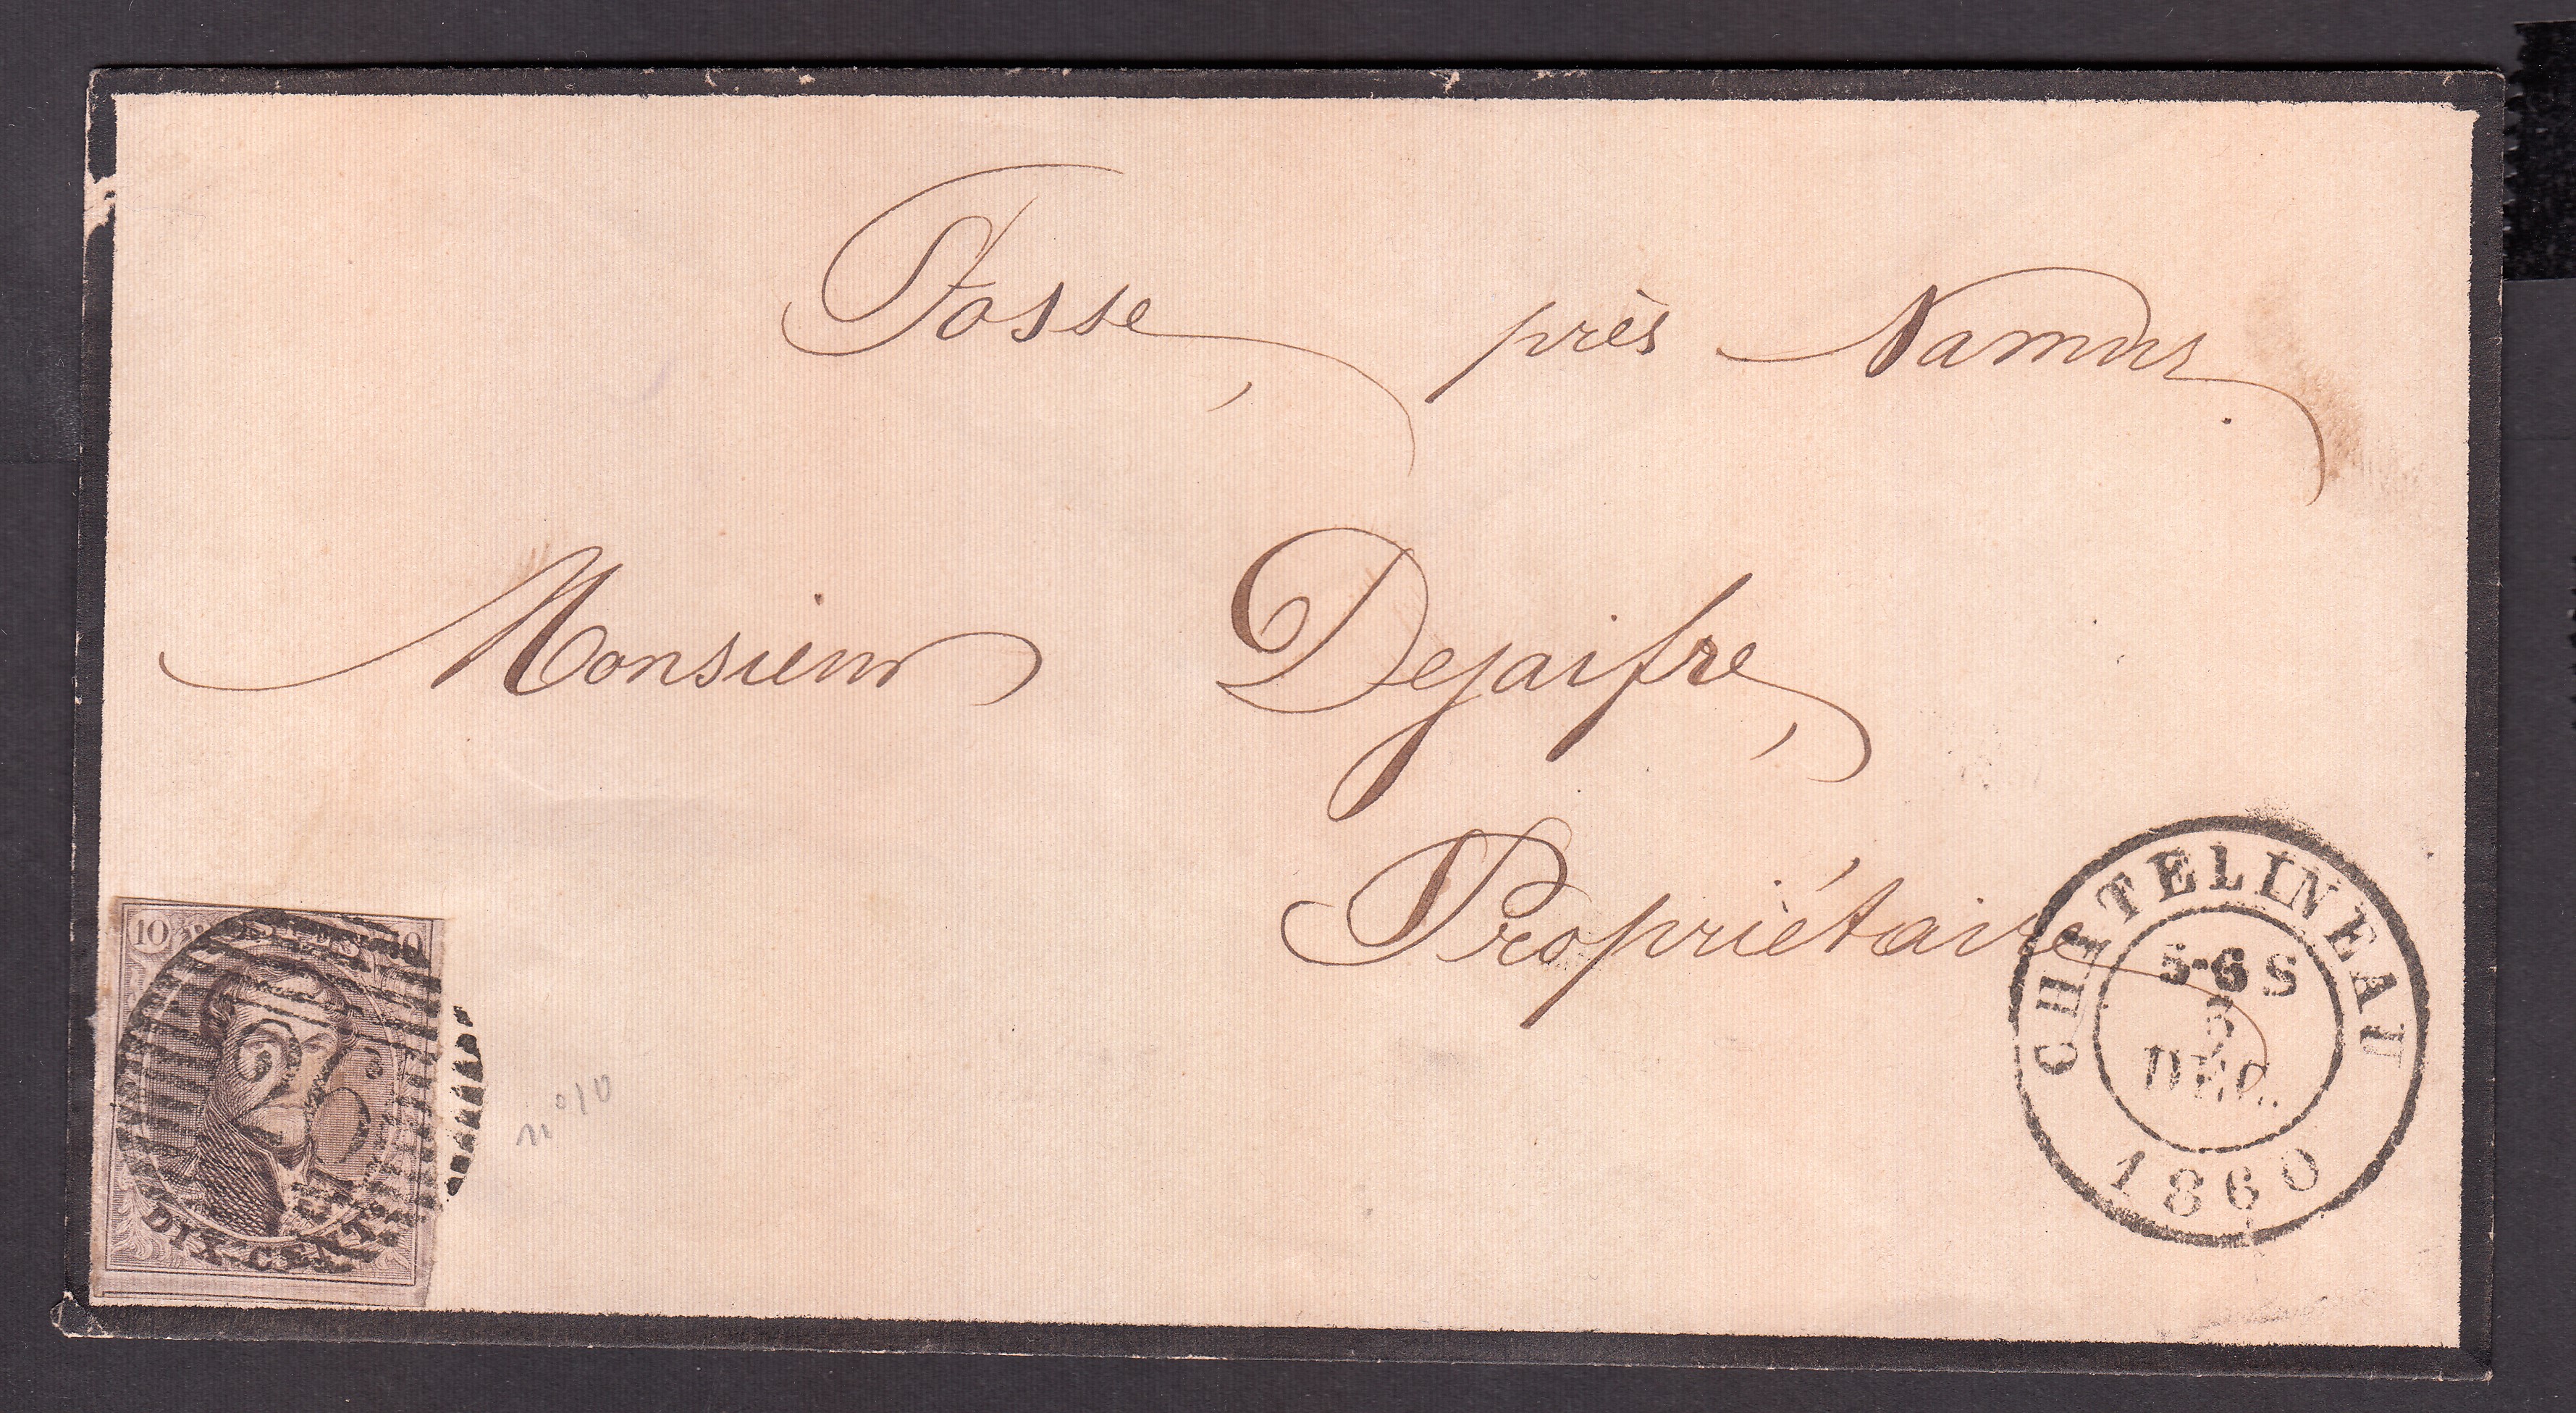 Fosse, près Namur
Monsieur Dejaifre,
Propriétaire
10 POSTES 10
DIX CENT.
n° 10
CHATELINEAU
5-6 S
3
DEC.
1860